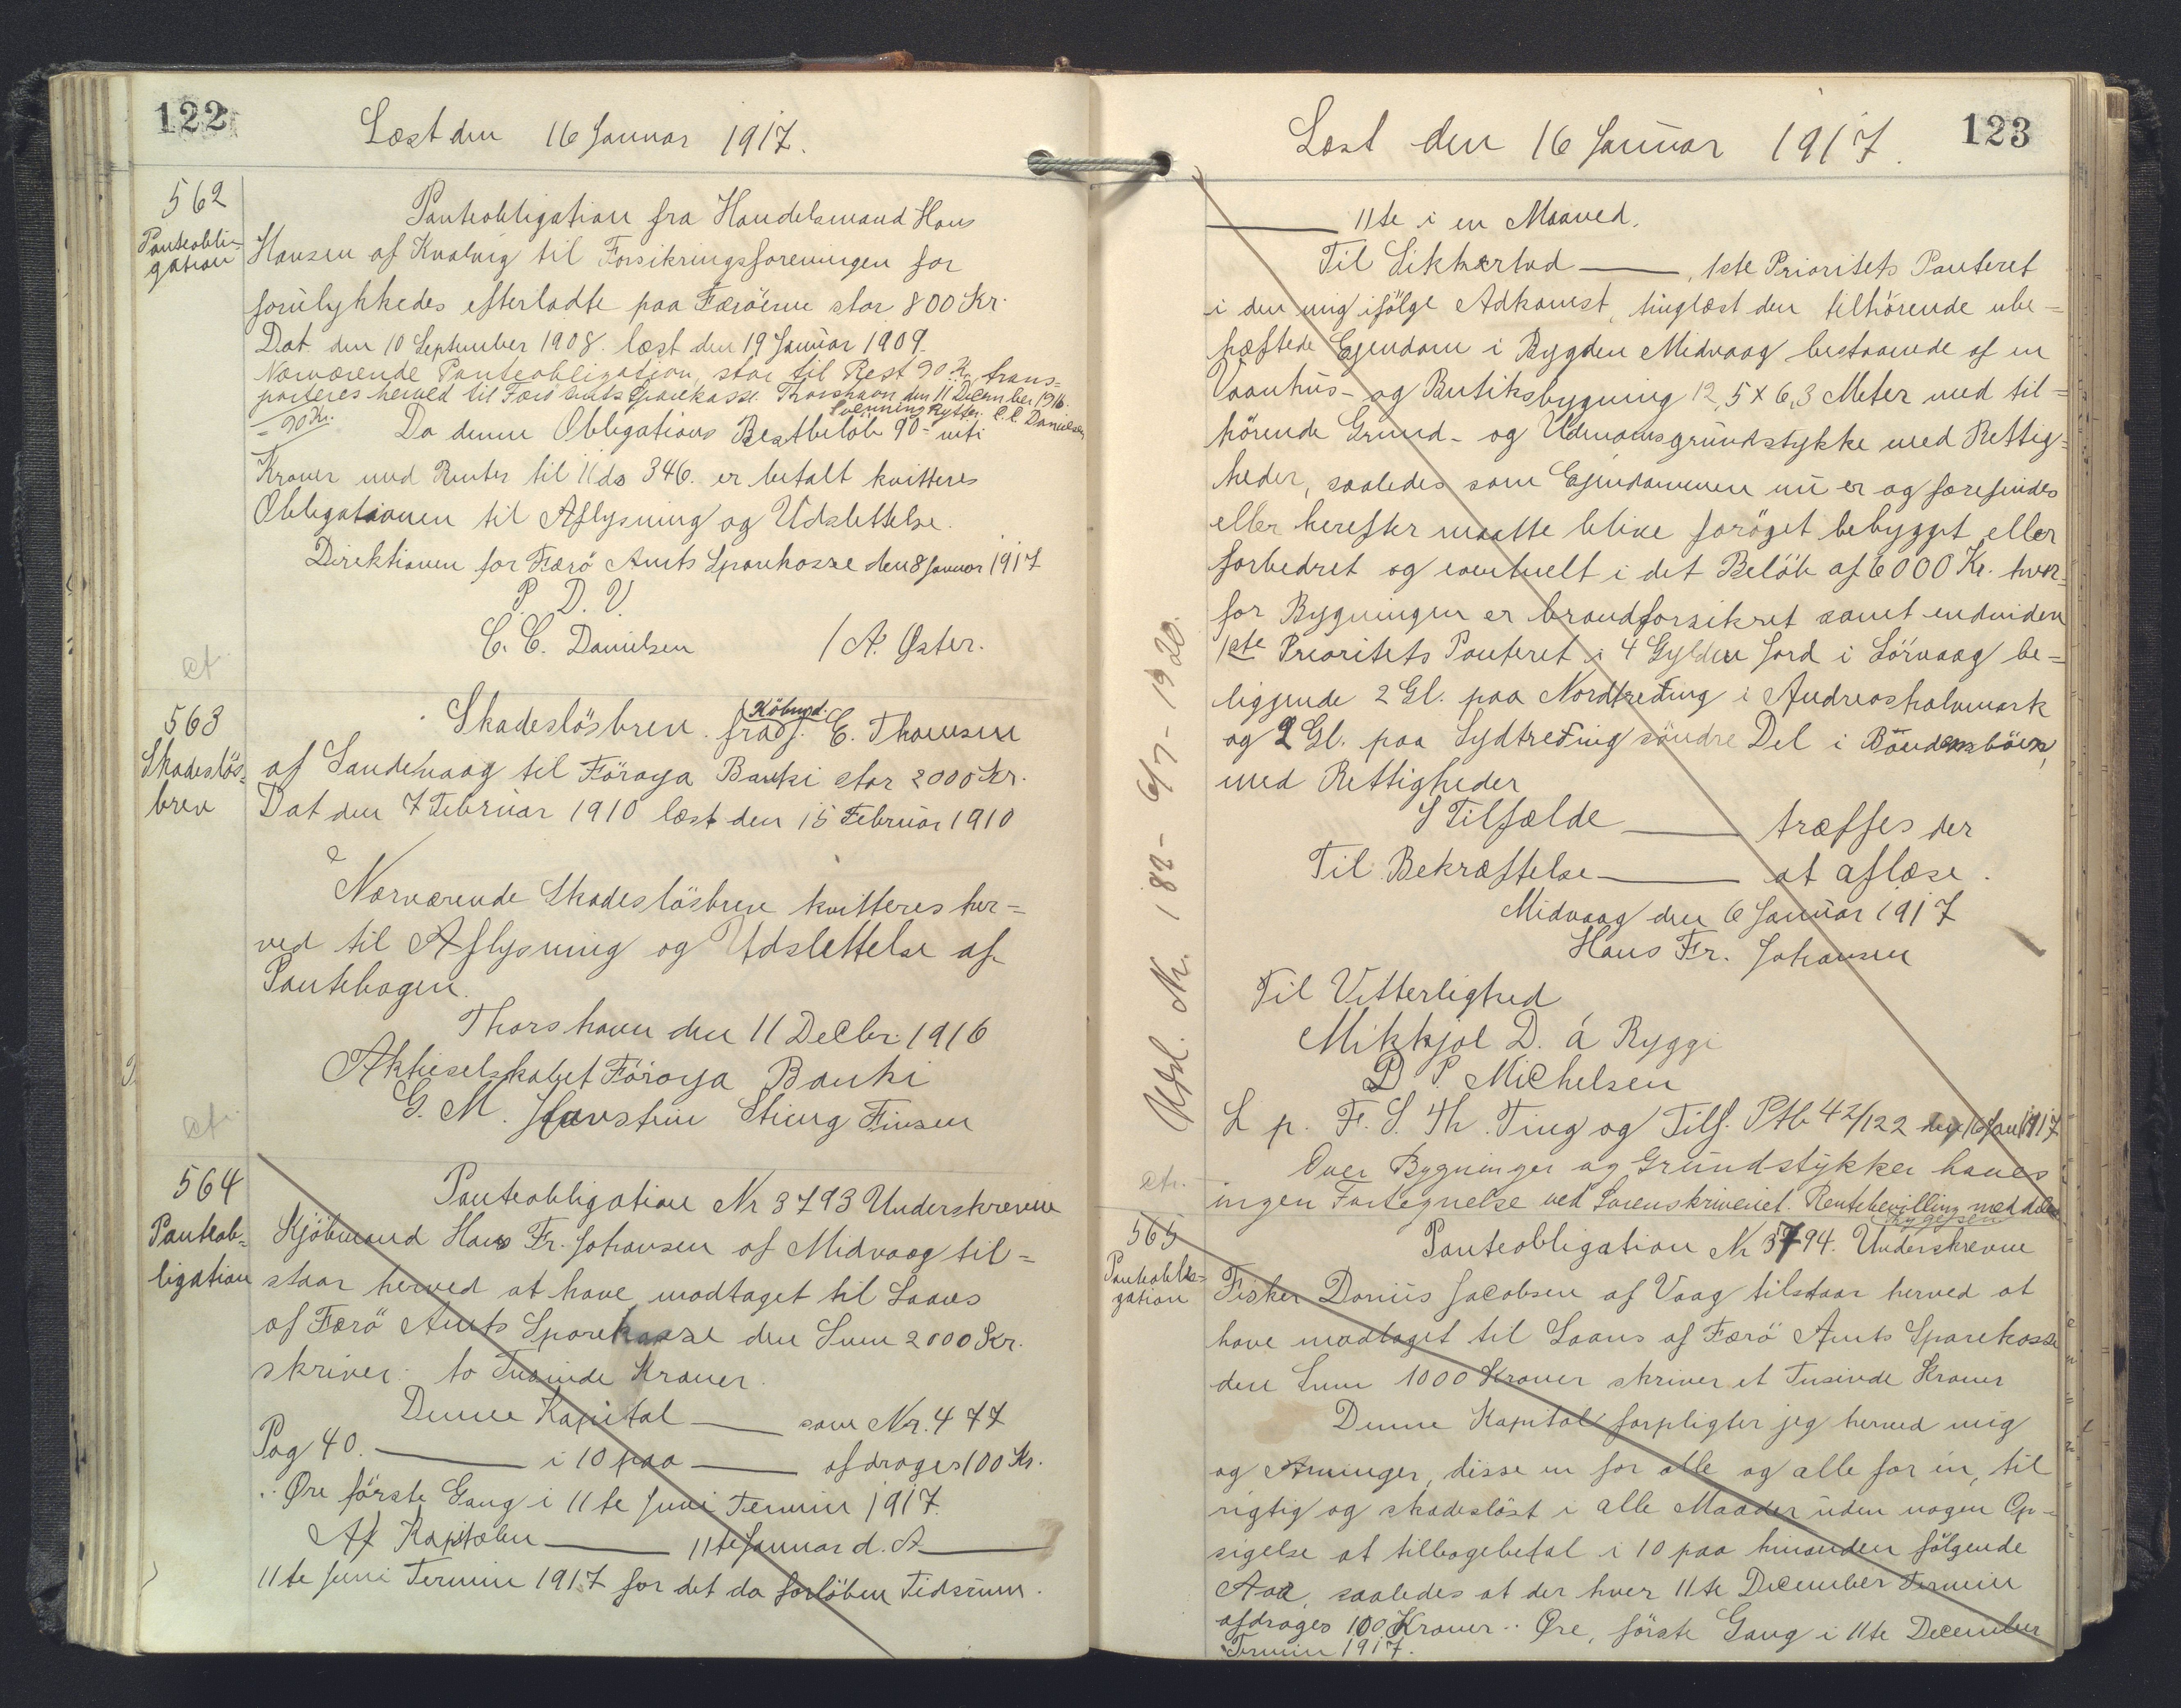 122
Læst den 16 Januar 1917.
562
Panteobli-
gation
Panteobligation fra Handelsmand Hans
Hansen af Kvalvig til Forsikringsforeningen for
forulykkedes efterladte paa Færöerne stor 800 Kr.
Dat. den 10 September 1908. læst den 19 Januar 1909.
Nærværende Panteobligation, stor til Rest 90 Kr. trans-
porteres herved til Færö Amts Sparekasse. Thorshavn den 11 December 1916.
= 90 Kr. Svenning Rytter. C. C. Danielsen
Da denne Obligations Restbelöb 90 - niti
Kroner med Renter til 11 ds 346. er betalt kvitteres
Obligationen til Aflysning og Udslettelse.
Direktionen for Færö Amts Sparekasse den 8 Januar 1917
P. D. V.
C. C. Danielsen / A. Øster.
cf.
563
Skadeslös-
brev
Skadeslösbrev fra Köbmd. J. E. Thomsen
af Sandevaag til Föroya Banki stor 2000 Kr.
Dat den 7 Februar 1910 læst den 15 Februar 1910
Nærværende Skadeslösbrev kvitteres her-
ved til Aflysning og Udslettelse af
Pantebogen.
Thorshavn den 11 Decbr. 1916
Aktieselskabet Föroya Banki
G. M. Stieng Finsen
cf.
564
Panteob-
ligation
Panteobligation Nr 3793 Underskrevne
Kjöbmand Hans Fr. Johansen af Midvaag til-
staar herved at have modtaget til Laans
af Færö Amts Sparekasse den Sum 2000 Kr.
skriver to Tusinde Kroner.
Denne Kapital ——— som Nr. 477
Pag 40. ——— i 10 paa ——— afdrages 100 Kr.
.. Øre förste Gang i 11te Juni Termin 1917.
Af Kapitalen ——— 11te Januar d. A ———
11te Juni Termin 1917 for det da forlöbne Tidsrum.
123
Læst den 16 Januar 1917.
——— 11te i en Maaned.
Til Sikkerhed ———, 1ste Prioritets Panteret
i den mig ifölge Adkomst, tinglæst den tilhörende ube-
hæftede Ejendom i Bygden Midvaag bestaaende af en
Vaanhus- og Butiksbygning 12,5 x 6,3 Meter med til-
hörende Grund- og Udmarksgrundstykke med Rettig-
heder, saaledes som Ejendommen nu er og forefindes
eller herefter maatte blive foröget bebygget eller
forbedret og eventuelt i det Belöb af 6000 Kr. hvor-
for Bygningen er brandforsikret samt endvidere
1ste Prioritets Panteret i 4 Gylden Jord i Sörvaag be-
liggende 2 Gl. paa Nordtreding i Andreashalvmark
og 2 Gl. paa Sydtreding söndre Del i Böndersböur,
med Rettigheder
I Tilfælde ——— træffes der
Til Bekræftelse ——— at aflæse.
Midvaag den 6 Januar 1917
Hans Fr. Johansen
Til Vitterlighed
Mikkjol D. á Ryggi
D P. Michelsen
L p. F. S. Th. Ting og Tilf. Ptb 42/122 den 16 Jan 1917
Over Bygninger og Grundstykker haves
ingen Fortegnelse ved Sorenskriveriet. Rentebevilling meddelt
Udsl. Nr. 182 - 6/7 - 1920.
cf.
565
Panteobli-
gation
Panteobligation Nr 3794. Underskrevne
Fisker Danius Jacobsen af Vaag tilstaar herved at
have modtaget til Laans af Færö Amts Sparekasse
den Sum 1000 Kroner skriver et Tusinde Kroner
Denne Kapital forpligter jeg herved mig
og Arvinger, disse en for alle og alle for en, til
rigtig og skadeslöst i alle Maader uden nogen Op-
sigelse at tilbagebetal i 10 paa hinanden fölgende
Aar, saaledes at der hver 11te December Termin
afdrages 100 Kroner .. Øre, förste Gang i 11te December
Termin 1917.